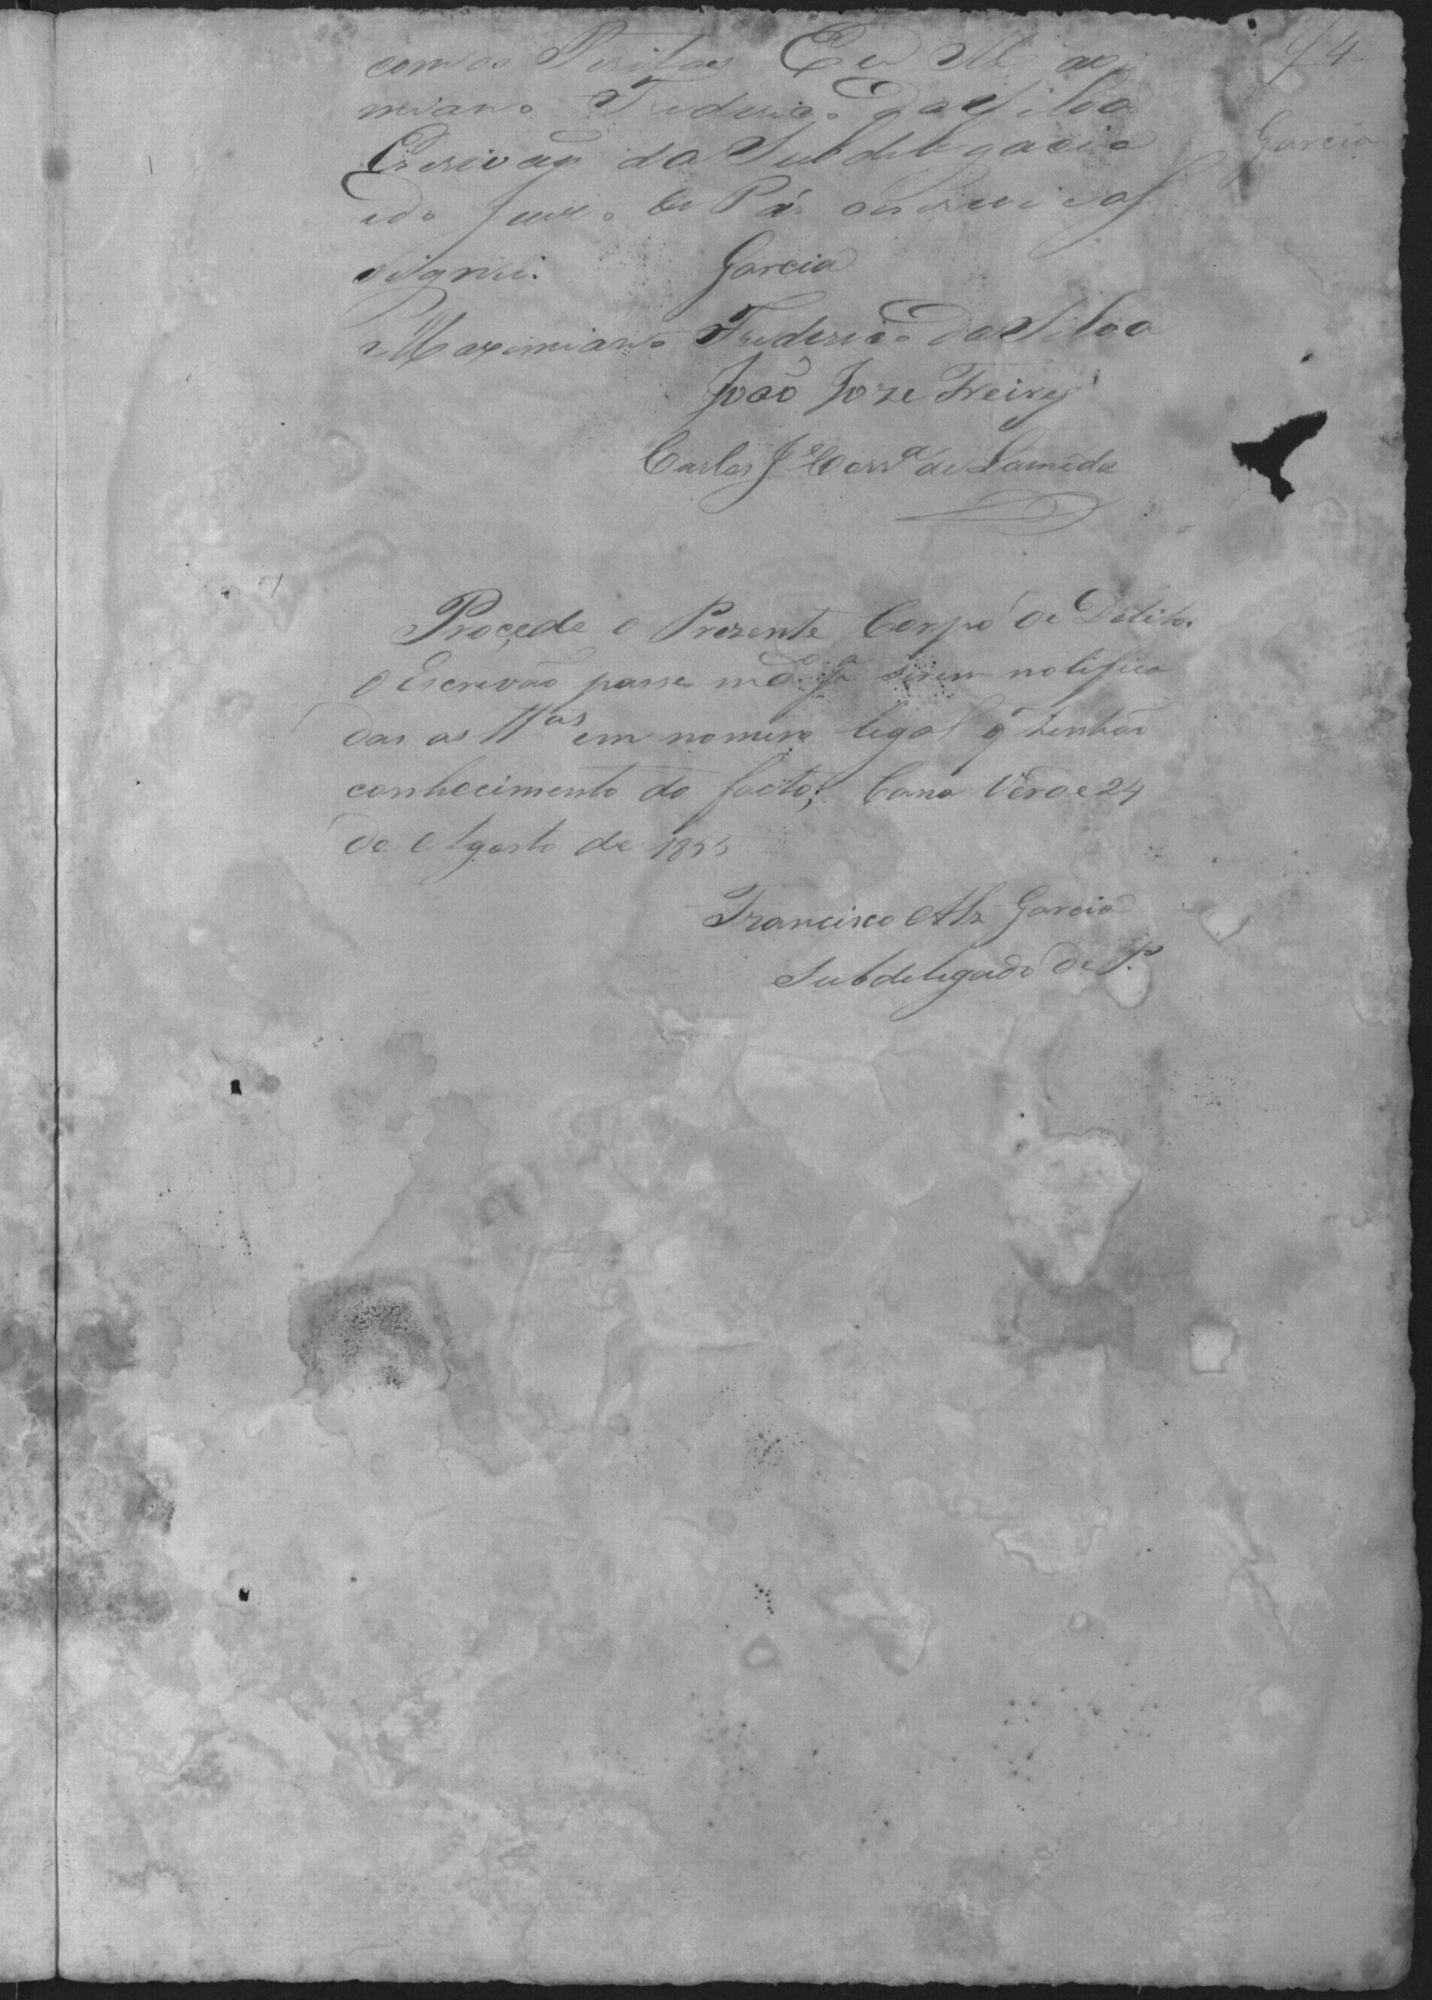 com os Peritos Eu Maxi
miano Frederico da Silva
Escrivão da Subdelegacia
e do Juizo de Pás escrevi e as
signei.
Garcia
Maximiano Frederico da Silva
João Joze Freire
Carlos Je de Lameda
Procede o Prezente Corpo de Delito.
O Escrivão passe md.o pa serem notifica
das as ttas em nomero legal q tenhão
conhecimento do facto; Cana Verde 24
de Agosto de 1855
Francisco Alz Garcia
Subdelegado de P.
44
Garcia